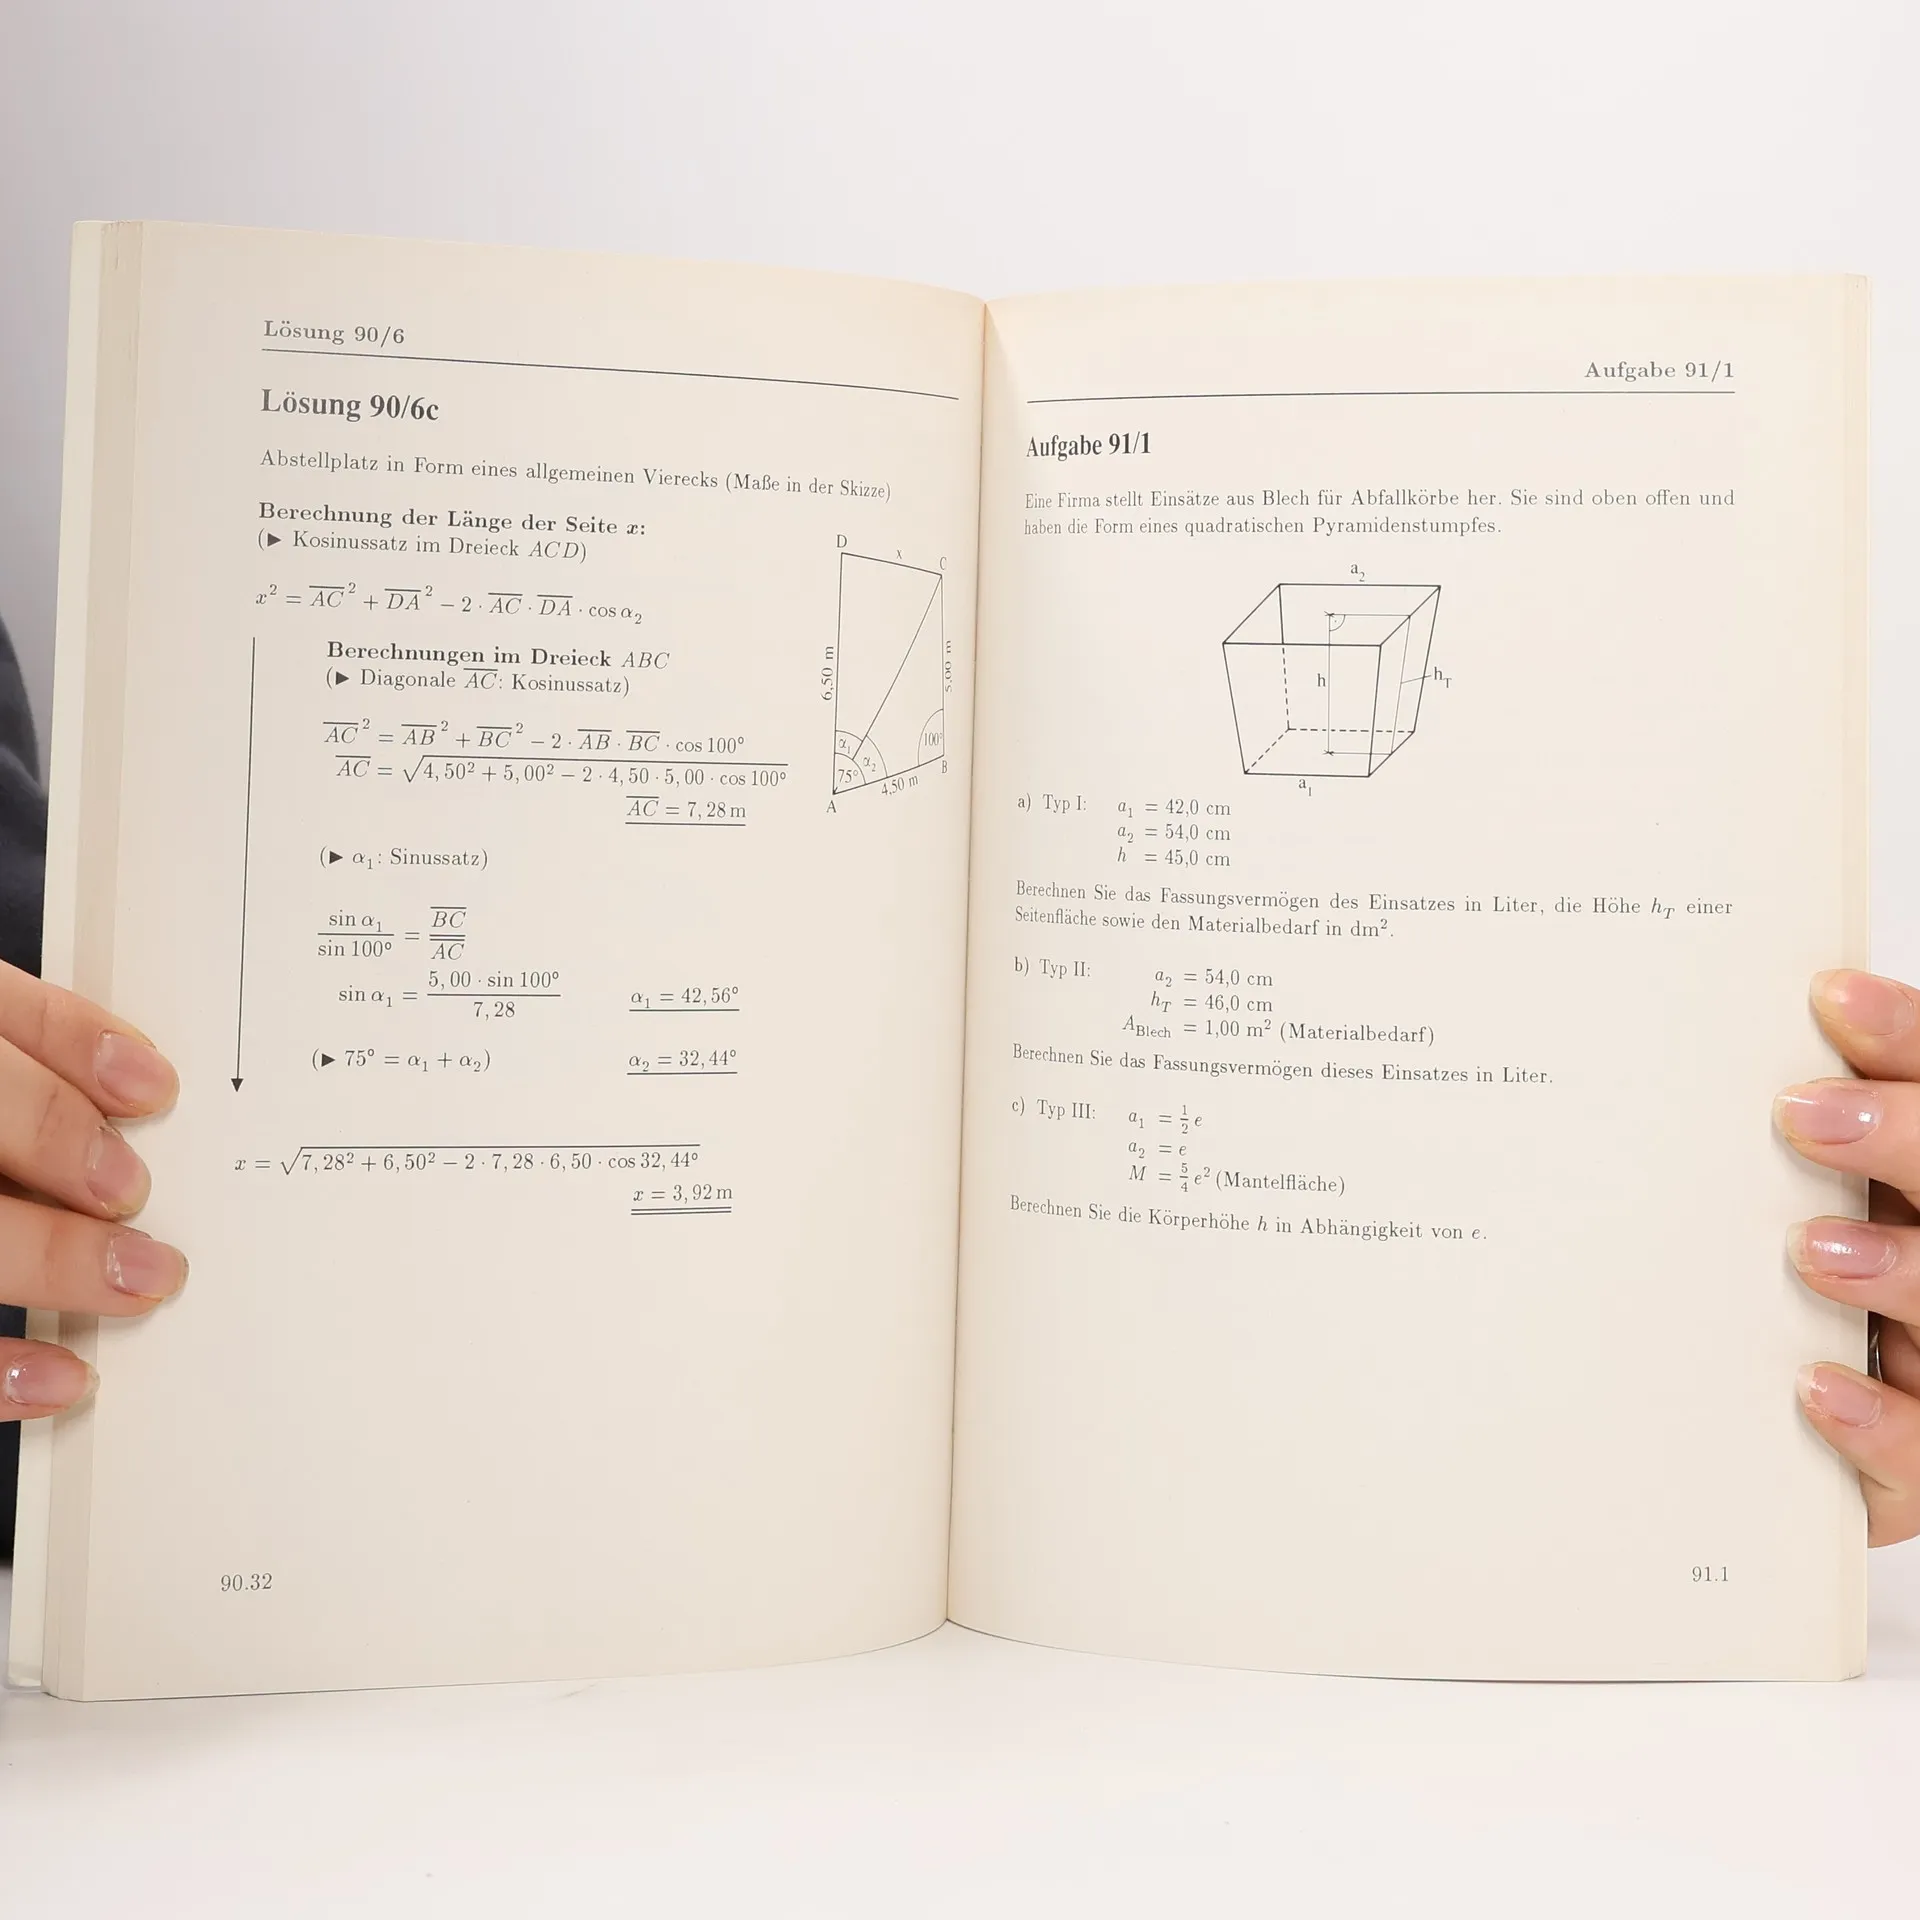 Lösung 90/6
Lösung 90/6c
Abstellplatz in Form eines allgemeinen Vierecks (Maße in der Skizze)
Berechnung der Länge der Seite x:
(▶ Kosinussatz im Dreieck ACD)
x² = A̅C̅² + D̅A̅² − 2 · A̅C̅ · D̅A̅ · cos α₂
Berechnungen im Dreieck ABC
(▶ Diagonale A̅C̅: Kosinussatz)
A̅C̅² = A̅B̅² + B̅C̅² − 2 · A̅B̅ · B̅C̅ · cos 100°
A̅C̅ = √(4,50² + 5,00² − 2 · 4,50 · 5,00 · cos 100°)
A̅C̅ = 7,28 m
(▶ α₁: Sinussatz)
sin α₁ / sin 100° = B̅C̅ / A̅C̅
sin α₁ = 5,00 · sin 100° / 7,28    α₁ = 42,56°
(▶ 75° = α₁ + α₂)    α₂ = 32,44°
x = √(7,28² + 6,50² − 2 · 7,28 · 6,50 · cos 32,44°)
x = 3,92 m
D
x
C
6,50 m
5,00 m
α₁
α₂
100°
75°
B
4,50 m
A
90.32
Aufgabe 91/1
Aufgabe 91/1
Eine Firma stellt Einsätze aus Blech für Abfallkörbe her. Sie sind oben offen und
haben die Form eines quadratischen Pyramidenstumpfes.
a₂
h
h_T
a₁
a) Typ I: a₁ = 42,0 cm
a₂ = 54,0 cm
h = 45,0 cm
Berechnen Sie das Fassungsvermögen des Einsatzes in Liter, die Höhe h_T einer
Seitenfläche sowie den Materialbedarf in dm².
b) Typ II: a₂ = 54,0 cm
h_T = 46,0 cm
A_Blech = 1,00 m² (Materialbedarf)
Berechnen Sie das Fassungsvermögen dieses Einsatzes in Liter.
c) Typ III: a₁ = ½ e
a₂ = e
M = 5/4 e² (Mantelfläche)
Berechnen Sie die Körperhöhe h in Abhängigkeit von e.
91.1